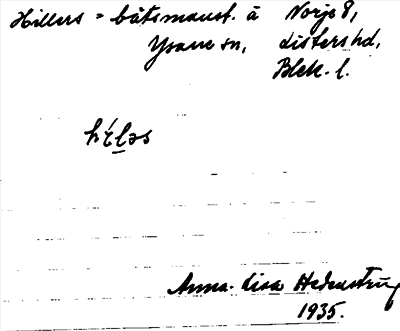 Hillers = båtsmanst. å Norje 8,
Ysane sn, Listers hd,
Blek. l.
hɩ́ləs
Anna-Lisa Hedenstrüg
1935.